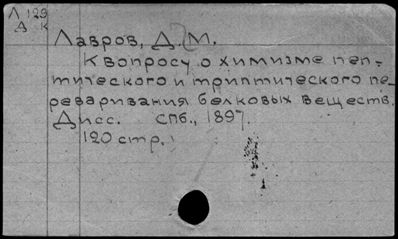 Л 129
Д К
Лавров, Д. М.
К вопросу о химизме пеп-
тического и триптического пе-
реваривания белковых веществ.
Дисс. СПб., 1897.
120 стр.